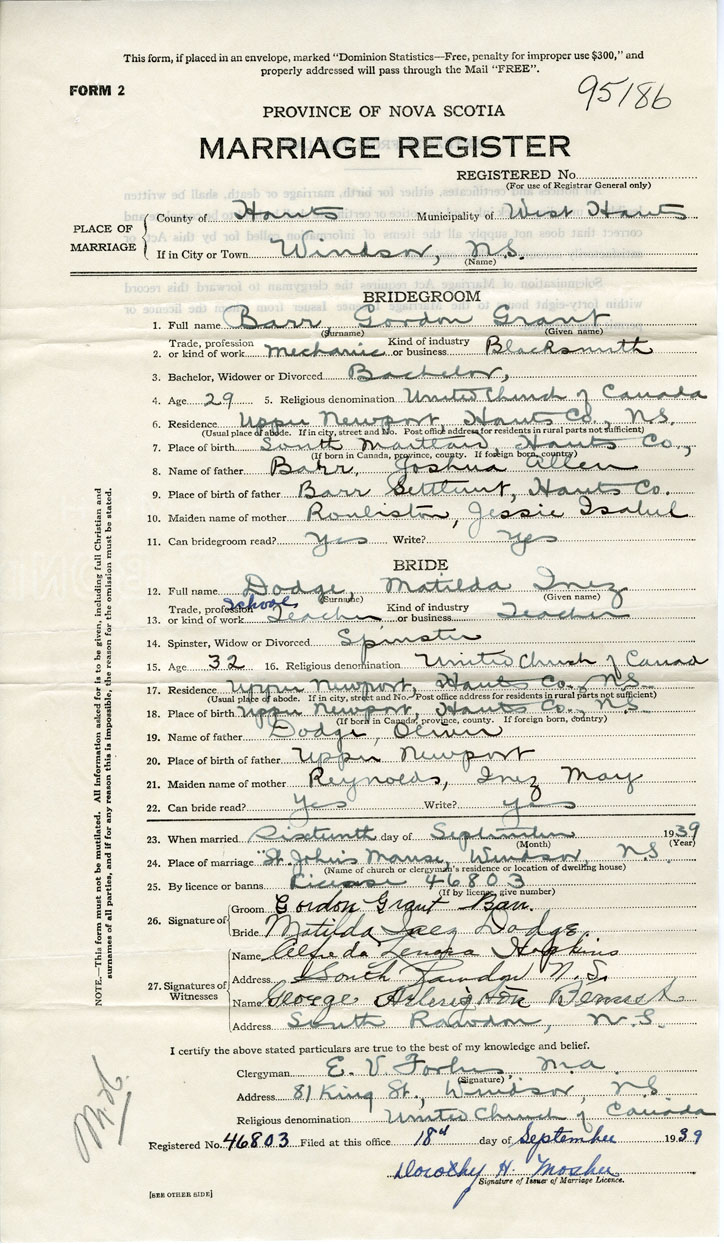 This form, if placed in an envelope, marked “Dominion Statistics—Free, penalty for improper use $300,” and
properly addressed will pass through the Mail “FREE”.
FORM 2
95186
PROVINCE OF NOVA SCOTIA
MARRIAGE REGISTER
REGISTERED No.
(For use of Registrar General only)
PLACE OF MARRIAGE
County of Hants Municipality of West Hants
If in City or Town Windsor, N.S.
(Name)
BRIDEGROOM
1. Full name Barr, Gordon Grant
(Surname) (Given name)
2. Trade, profession or kind of work Mechanic Kind of industry or business Blacksmith
3. Bachelor, Widower or Divorced Bachelor,
4. Age 29 5. Religious denomination United Church of Canada
6. Residence Upper Newport, Hants Co., N.S.
(Usual place of abode. If in city, street and No. Post office address for residents in rural parts not sufficient)
7. Place of birth South Maitland Hants Co.,
(If born in Canada, province, county. If foreign born, country)
8. Name of father Barr, Joshua Allen
9. Place of birth of father Barr Settlmt, Hants Co.
10. Maiden name of mother Rouliston, Jessie Isabel
11. Can bridegroom read? Yes Write? Yes
BRIDE
12. Full name Dodge, Matilda Inez
(Surname) (Given name)
13. Trade, profession or kind of work School Teacher Kind of industry or business Teacher
14. Spinster, Widow or Divorced Spinster
15. Age 32 16. Religious denomination United Church of Canad
17. Residence Upper Newport, Hants Co., N.S.
(Usual place of abode. If in city, street and No. Post office address for residents in rural parts not sufficient)
18. Place of birth Upper Newport, Hants Co., N.S.
(If born in Canada, province, county. If foreign born, country)
19. Name of father Dodge, Oliver
20. Place of birth of father Upper Newport
21. Maiden name of mother Reynolds, Inez May
22. Can bride read? Yes Write? Yes
23. When married Sixteenth day of September 1939
(Month) (Year)
24. Place of marriage "St. John's Manse, Windsor, N.S.
(Name of church or clergyman's residence or location of dwelling house)
25. By licence or banns License 46803
(If by licence, give number)
26. Signature of
Groom Gordon Grant Barr.
Bride Matilda Inez Dodge.
27. Signatures of Witnesses
Name Alfreda Hopkins
Address South Rawdon N.S.
Name George
Address South Rawdon, N.S.
I certify the above stated particulars are true to the best of my knowledge and belief.
Clergyman E. V. Forbes, M.A.
(Signature)
Address 81 King St., Windsor, N.S.
Religious denomination United Church of Canada
Registered No. 46803 Filed at this office 18th day of September 1939
Dorothy H. Mosher
Signature of Issuer of Marriage Licence.
[SEE OTHER SIDE]
NOTE.—This form must not be mutilated. All information asked for is to be given, including full Christian and
surnames of all parties, and if for any reason this is impossible, the reason for the omission must be stated.